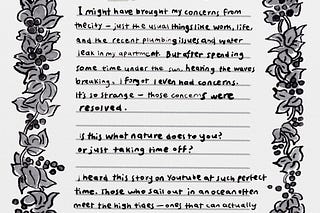 I might have brought my concerns from
the city – just the usual things like work, life,
and the recent plumbing issues and water
leak in my apartment. But after spending
some time under the sun, hearing the waves
breaking, I forgot I even had concerns.
It's so strange – those concerns were
resolved.
Is this what nature does to you?
or just taking time off?
I heard this story on Youtube at such perfect
time. Those who sail out in an ocean often
meet the high tides – ones that can actually